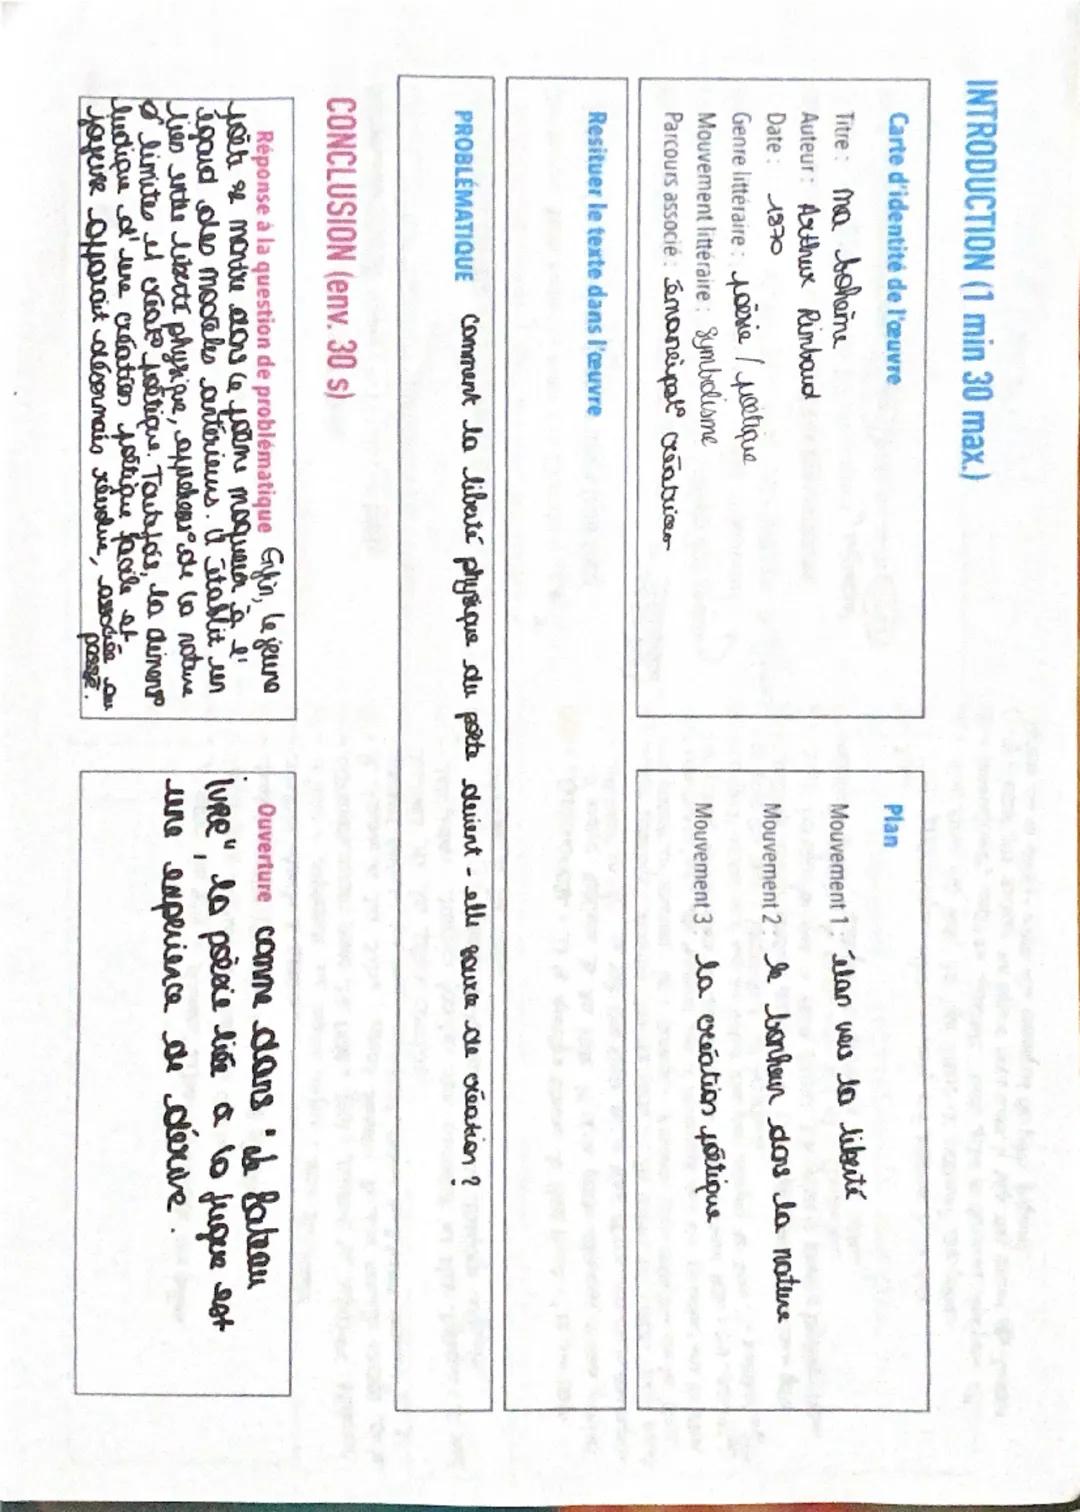 INTRODUCTION (1 min 30 max.)
Carte d'identité de l'œuvre
Titre : Ma bohème
Auteur : Arthur Rimbaud
Date : 1870
Genre littéraire : poésie / poétique
Mouvement littéraire : Symbolisme
Parcours associé : Émancipat° créatrices
Plan
Mouvement 1 : élan vers la liberté
Mouvement 2 : le bonheur dans la nature
Mouvement 3 : la création poétique
Resituer le texte dans l'œuvre
PROBLÉMATIQUE Comment la liberté physique du poète devient-elle source de création ?
CONCLUSION (env. 30 s)
Réponse à la question de problématique Enfin, le jeune
poète se montre dans ce poème moqueur à l'
égard des modèles antérieurs. Il établit un
lien entre liberté physique, de la nature
limites et créat° poétique. Toutefois, la dimens°
ludique d'une création poétique facile et
joyeuse apparait désormais révolue, associée au
passé.
Ouverture comme dans "le Bateau
ivre", la poésie liée à la fugue est
une expérience de dérive.